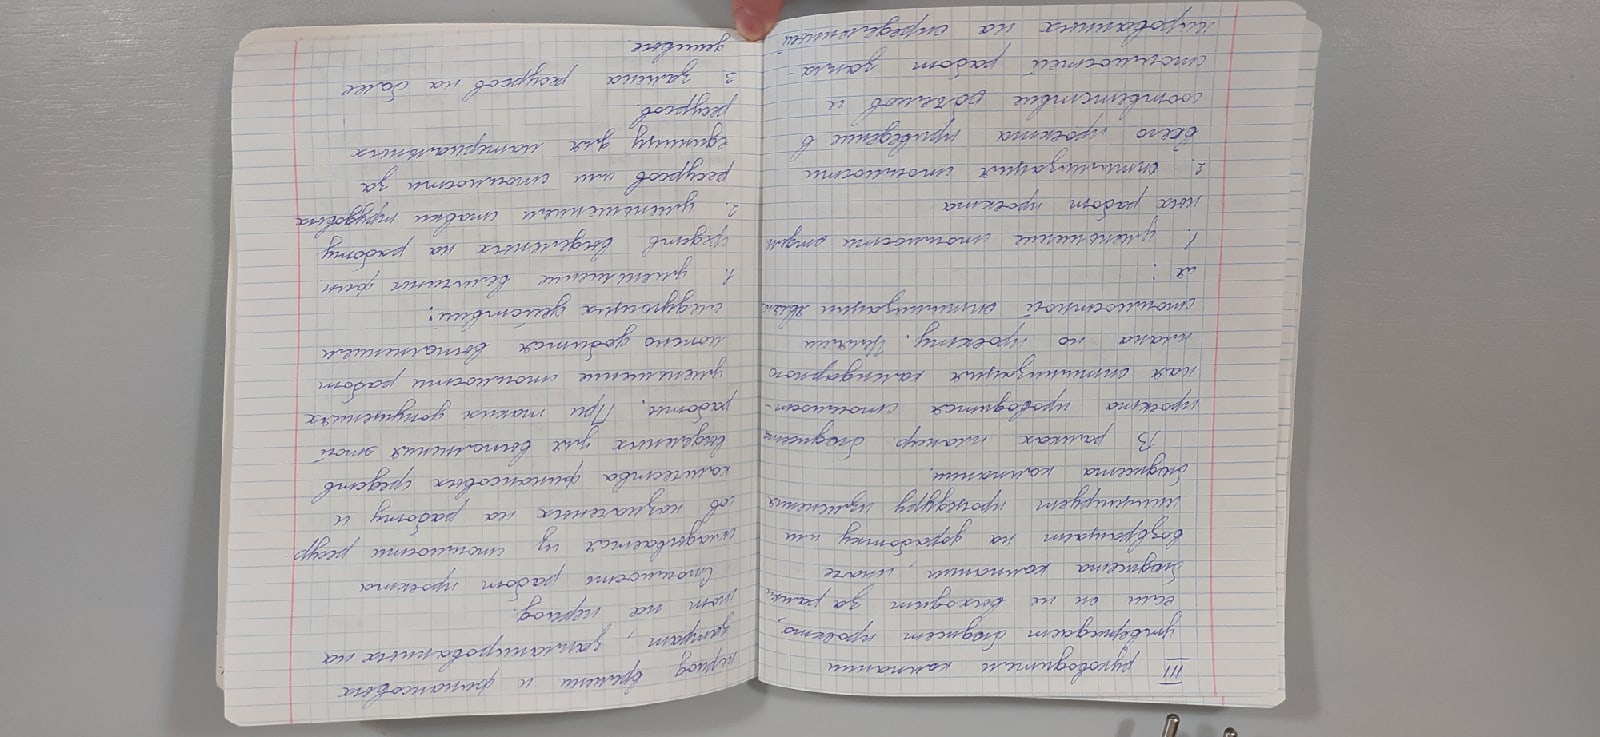 III руководитель компании
утверждает бюджет проекта,
если он не выходит за рамки
бюджета компании, иначе
возвращает на доработку или
инициирует процедуру изменения
бюджета компании.
В рамках планир. бюджета
проекта проводится стоимост-
ная оптимизация календарного
плана по проекту. Целями
стоимостной оптимизации являют
ся :
1. уменьшение стоимости отдель
ных работ проекта
2. оптимизация стоимости
всего проекта приведение в
соответствие объемов и
стоимостей работ запла-
нированных на определенный
период времени и финансовых
затрат, запланированных на
тот же период.
Стоимость работ проекта
складывается из стоимости ресур
сов назначеных на работу и
количества финансовых средств
выделеных для выполнения этой
работы. При таких допущениях
уменьшение стоимости работ
можно добится выполнением
следующих действий:
1. уменьшение величины фин
средств выделеных на работу
2. уменьшением ставки трудовых
ресурсов или стоимости за
единицу для материальных
ресурсов.
3 замена ресурсов на более
дешевые.